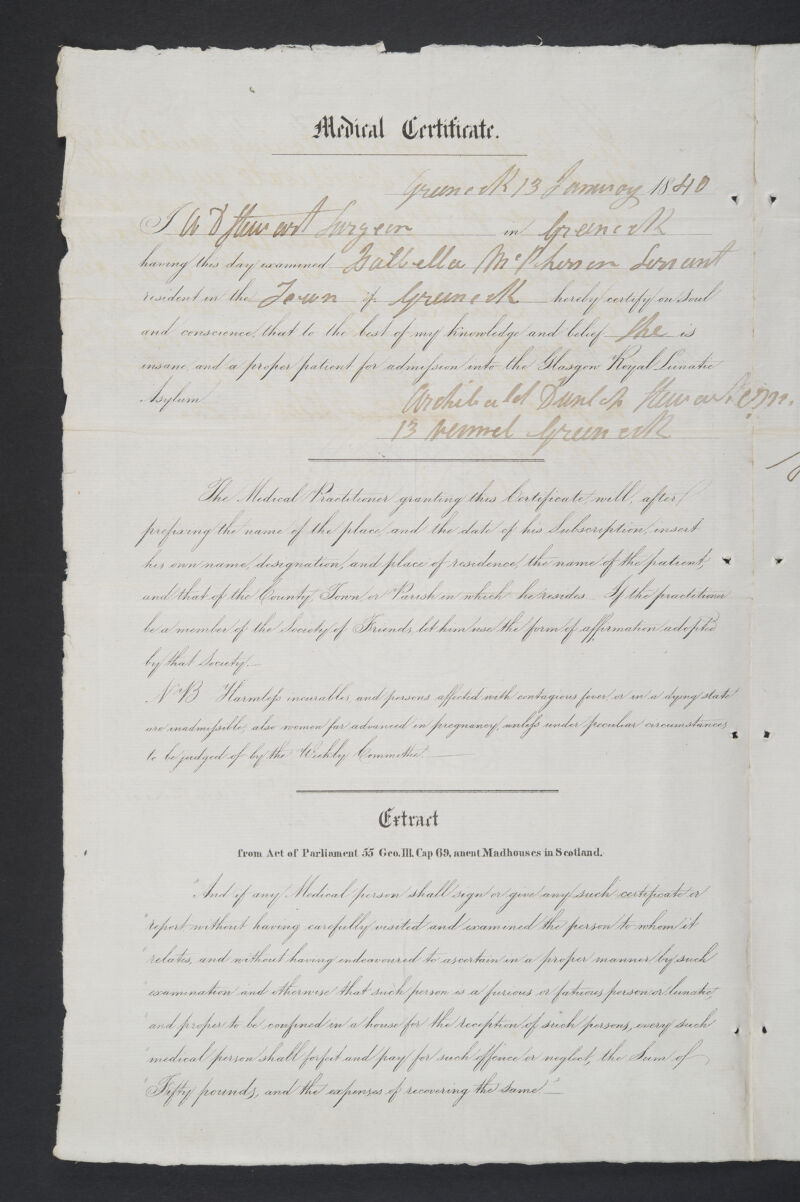 Medical Certificate.
Greenock 13 January 1840
I A D Stewart Surgeon in Greenock
having this day examined Isabella McPherson Servant
resident in the Town of Greenock hereby certify on soul
and conscience, that to the best of my knowledge and belief she is
insane, and a proper patient for admission into the Glasgow Royal Lunatic
Asylum
Archibald Dunlop Stewart
13 Vennel Greenock
The Medical Practitioner granting this Certificate, will, after
prefixing the name of the place, and the date of his Subscription, insert
his own name, designation, and place of residence, the name of the patient,
and that of the County, Town or Parish in which he resides. If the practitioner
be a member of the Society of Friends, let him use the form of affirmation adopted
by that Society.—
N.B. Harmless incurables, and persons affected with contagious fever, or in a dying state
are inadmissible; also women far advanced in pregnancy, unless under peculiar circumstances,
to be judged of by the Weekly Committee.—
Extract
from Act of Parliament 55 Geo. III. Cap 69, anent Madhouses in Scotland.
"And if any Medical person shall sign or give any such certificate or
"report without having carefully visited and examined the person to whom it
"relates, and without having endeavoured to ascertain in a proper manner by such
"examination and otherwise that such person is a furious or fatuous person or lunatic,
"and proper to be confined in a house for the reception of such persons, every such
"medical person shall forfeit and pay for such offence or neglect, the Sum of
"Fifty pounds, and the expenses of recovering the same."—